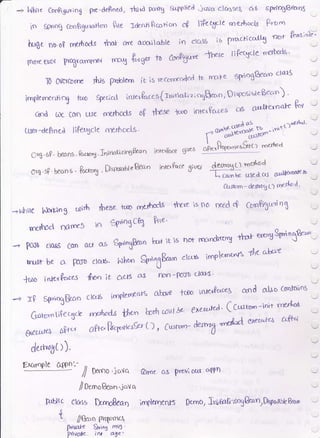 → While Configuring pre-defined, third party supplied Java classes as spring Beans
in spring configuration file Identification of lifecycle methods from
huge no of methods that are available in class is practically not
moreover programmer may forget to Configure these lifecycle methods.
To overcome this problem it is recommended to make springBean class
implementing two special interfaces (InitializingBean, DisposableBean).
and we can use methods of these two interfaces as alternate for
user-defined lifecycle methods.
can be used as
alternate to
custom-init() method.
org.sf.beans.factory.InitializingBean interface gives afterPropertiesSet() method
org.sf.beans.factory.DisposableBean interface gives destroy() method
can be used as alternate to
custom-destroy() method.
→ While Working with these two methods there is no need of Configuring
method names in Spring Cfg file.
→ POJO class can act as SpringBean but it is not mandatory that every SpringBean
must be a POJO class. When SpringBean class implements the above
two interfaces then it acts as non-pojo class.
→ If SpringBean class implements above two interfaces and also contains
Custom lifecycle methods then both could be executed. (Custom-init method
executes after afterPropertiesSet(), Custom-destroy method executes after
destroy()).
Example appn:-
// Demo.java Same as previous appn
// DemoBean.java
public class DemoBean implements Demo, InitializingBean, DisposableBean
{
//Bean properties
private String msg
private int age